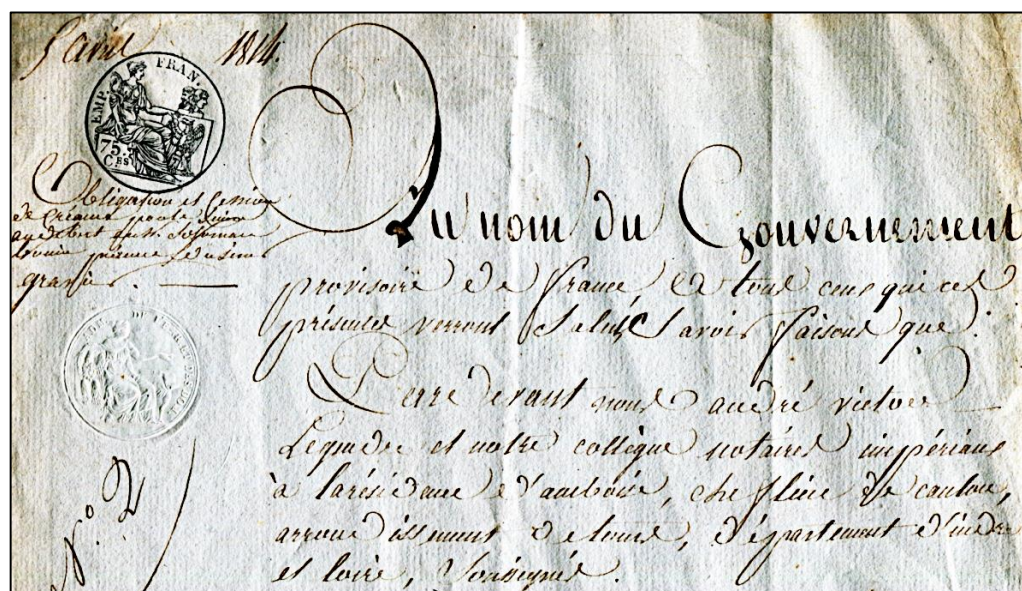 5 avril 1814.
EMP. FRAN.
75.
C.ES
Obligation et Cession
de Créance
Au nom du Gouvernement
provisoire de France Et tous ceux qui ces
présentes verront Salut, Savoir faisons que
Par devant nous andré victor
Lequedre et notre collègue notaires impériaux
à la résidence d'amboise, chef lieu de canton,
arrondissement de tours, département d'indre
et loire, Soussignés.
N.º 2